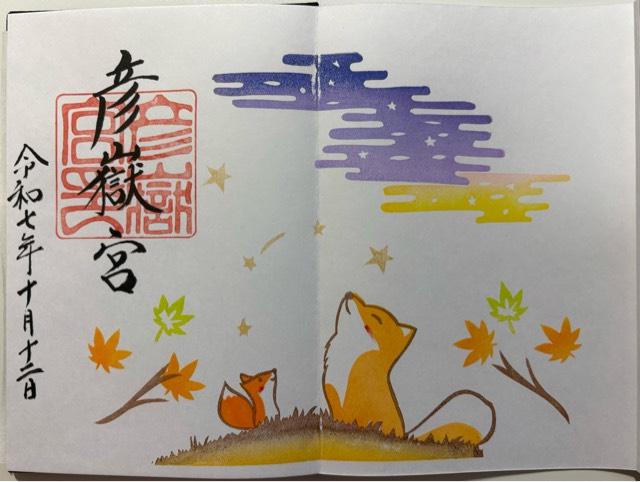 彦嶽宮
令和七年十月十二日